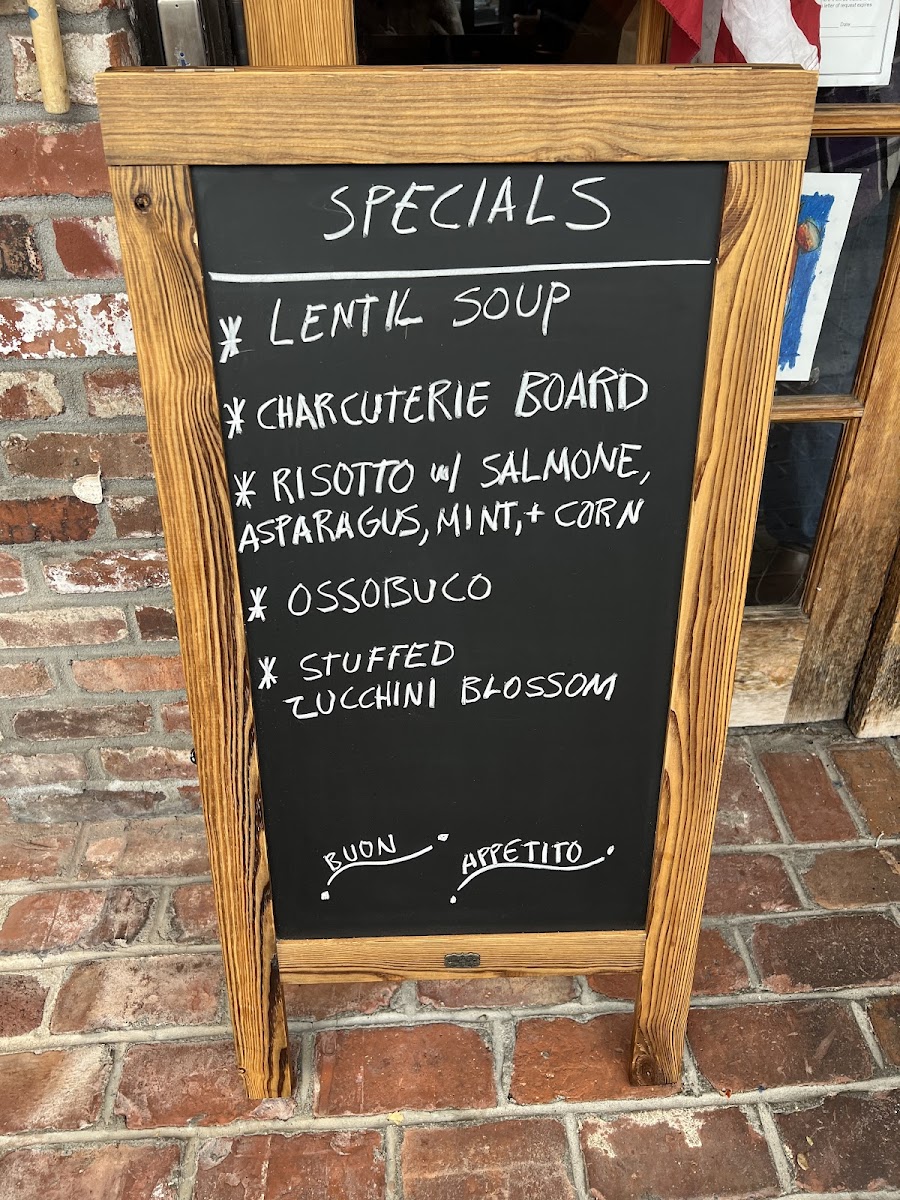 SPECIALS
* LENTIL SOUP
* CHARCUTERIE BOARD
* RISOTTO w/ SALMONE,
ASPARAGUS, MINT, + CORN
* OSSOBUCO
* STUFFED
ZUCCHINI BLOSSOM
BUON APPETITO
Date